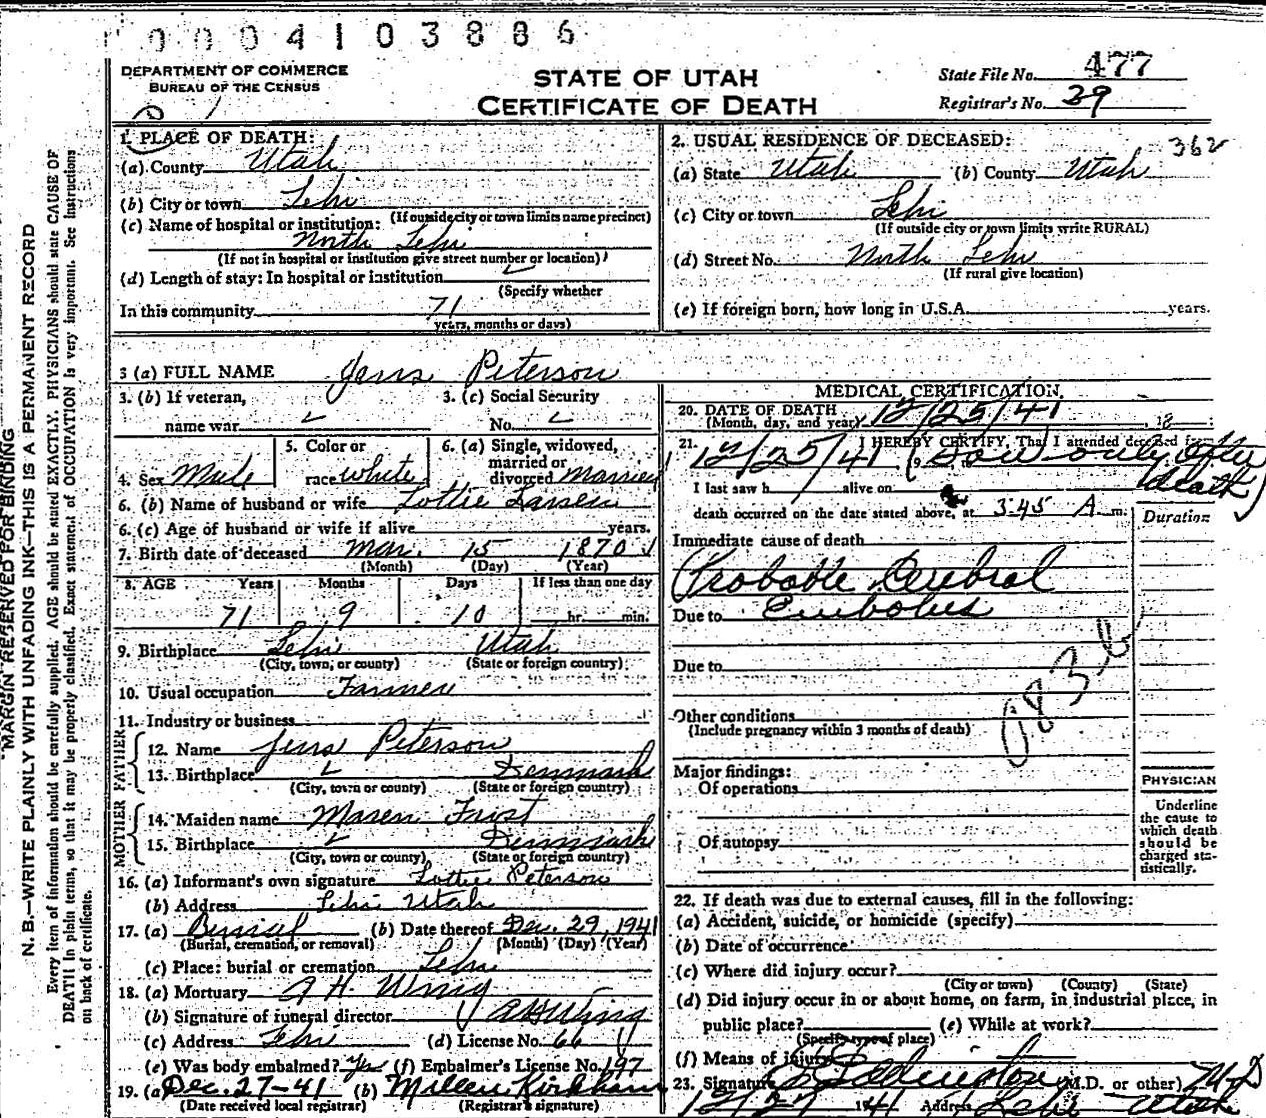 0004103886
DEPARTMENT OF COMMERCE
BUREAU OF THE CENSUS
STATE OF UTAH
CERTIFICATE OF DEATH
State File No. 477
Registrar's No. 29
MARGIN RESERVED FOR BINDING
N. B.—WRITE PLAINLY WITH UNFADING INK—THIS IS A PERMANENT RECORD
Every item of information should be carefully supplied. AGE should be stated EXACTLY. PHYSICIANS should state CAUSE OF
DEATH in plain terms, so that it may be properly classified. Exact statement of OCCUPATION is very important. See Instructions
on back of certificate.
1. PLACE OF DEATH:
(a) County Utah
(b) City or town Lehi
(If outside city or town limits name precinct)
(c) Name of hospital or institution:
North Lehi
(If not in hospital or institution give street number or location)
(d) Length of stay: In hospital or institution
(Specify whether
In this community 71
years, months or days)
2. USUAL RESIDENCE OF DECEASED: 362
(a) State Utah (b) County Utah
(c) City or town Lehi
(If outside city or town limits write RURAL)
(d) Street No. North Lehi
(If rural give location)
(e) If foreign born, how long in U.S.A. years.
3 (a) FULL NAME Jens Peterson
3. (b) If veteran, name war
3. (c) Social Security No.
4. Sex Male
5. Color or race white
6. (a) Single, widowed, married or divorced Married
6. (b) Name of husband or wife Lottie Larsen
6. (c) Age of husband or wife if alive years.
7. Birth date of deceased Mar. 15 1870
(Month) (Day) (Year)
8. AGE Years Months Days If less than one day
71 9 10 hr. min.
9. Birthplace Lehi Utah
(City, town, or county) (State or foreign country)
10. Usual occupation Farmer
11. Industry or business
FATHER
12. Name Jens Peterson
13. Birthplace Denmark
(City, town or county) (State or foreign country)
MOTHER
14. Maiden name Maren
15. Birthplace Denmark
(City, town or county) (State or foreign country)
16. (a) Informant's own signature Lottie Peterson
(b) Address Lehi Utah
17. (a) Burial (b) Date thereof Dec. 29, 1941
(Burial, cremation, or removal) (Month) (Day) (Year)
(c) Place: burial or cremation Lehi
18. (a) Mortuary A H. Wing
(b) Signature of funeral director A H Wing
(c) Address Lehi (d) License No. 66
(e) Was body embalmed? Yes (f) Embalmer's License No. 197
19. (a) Dec. 27-41 (b) Kirkham
(Date received local registrar) (Registrar's signature)
MEDICAL CERTIFICATION
20. DATE OF DEATH
(Month, day, and year) 12/25/41
21. I HEREBY CERTIFY, That I attended deceased
12/25/41 (Saw only after death)
I last saw h alive on
death occurred on the date stated above, at 3:45 A m.
Duration
Immediate cause of death
Probable Cerebral
Due to Embolus
Due to
083b
Other conditions
(Include pregnancy within 3 months of death)
Major findings:
Of operations
Of autopsy
PHYSICIAN
Underline
the cause to
which death
should be
charged sta-
tistically.
22. If death was due to external causes, fill in the following:
(a) Accident, suicide, or homicide (specify)
(b) Date of occurrence
(c) Where did injury occur?
(City or town) (County) (State)
(d) Did injury occur in or about home, on farm, in industrial place, in
public place? (e) While at work?
(Specify type of place)
(f) Means of injury
23. Signature Eddington (M.D. or other) M D
12/27 1941 Address Lehi Utah